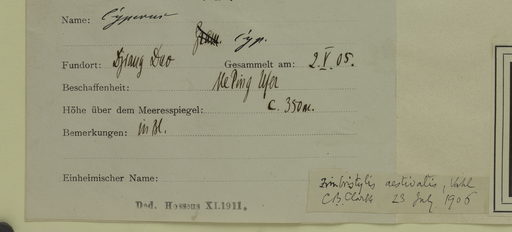 Name: Cyperus
Gram. Cyp.
Fundort: Djiang Dao Gesammelt am: 2.V.05.
Beschaffenheit: Me Ping Ufer
Höhe über dem Meeresspiegel: c. 350 m.
Bemerkungen: in Bl.
Einheimischer Name:
Ded. Hosseus XI.1911.
Fimbristylis aestivalis, Vahl
C.B. Clarke 23 July 1906